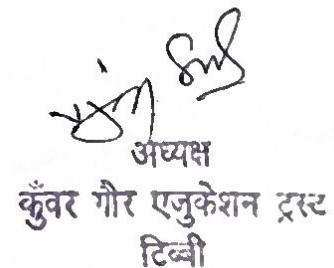 अध्यक्ष
कुँवर गौर एजुकेशन ट्रस्ट
टिब्बी